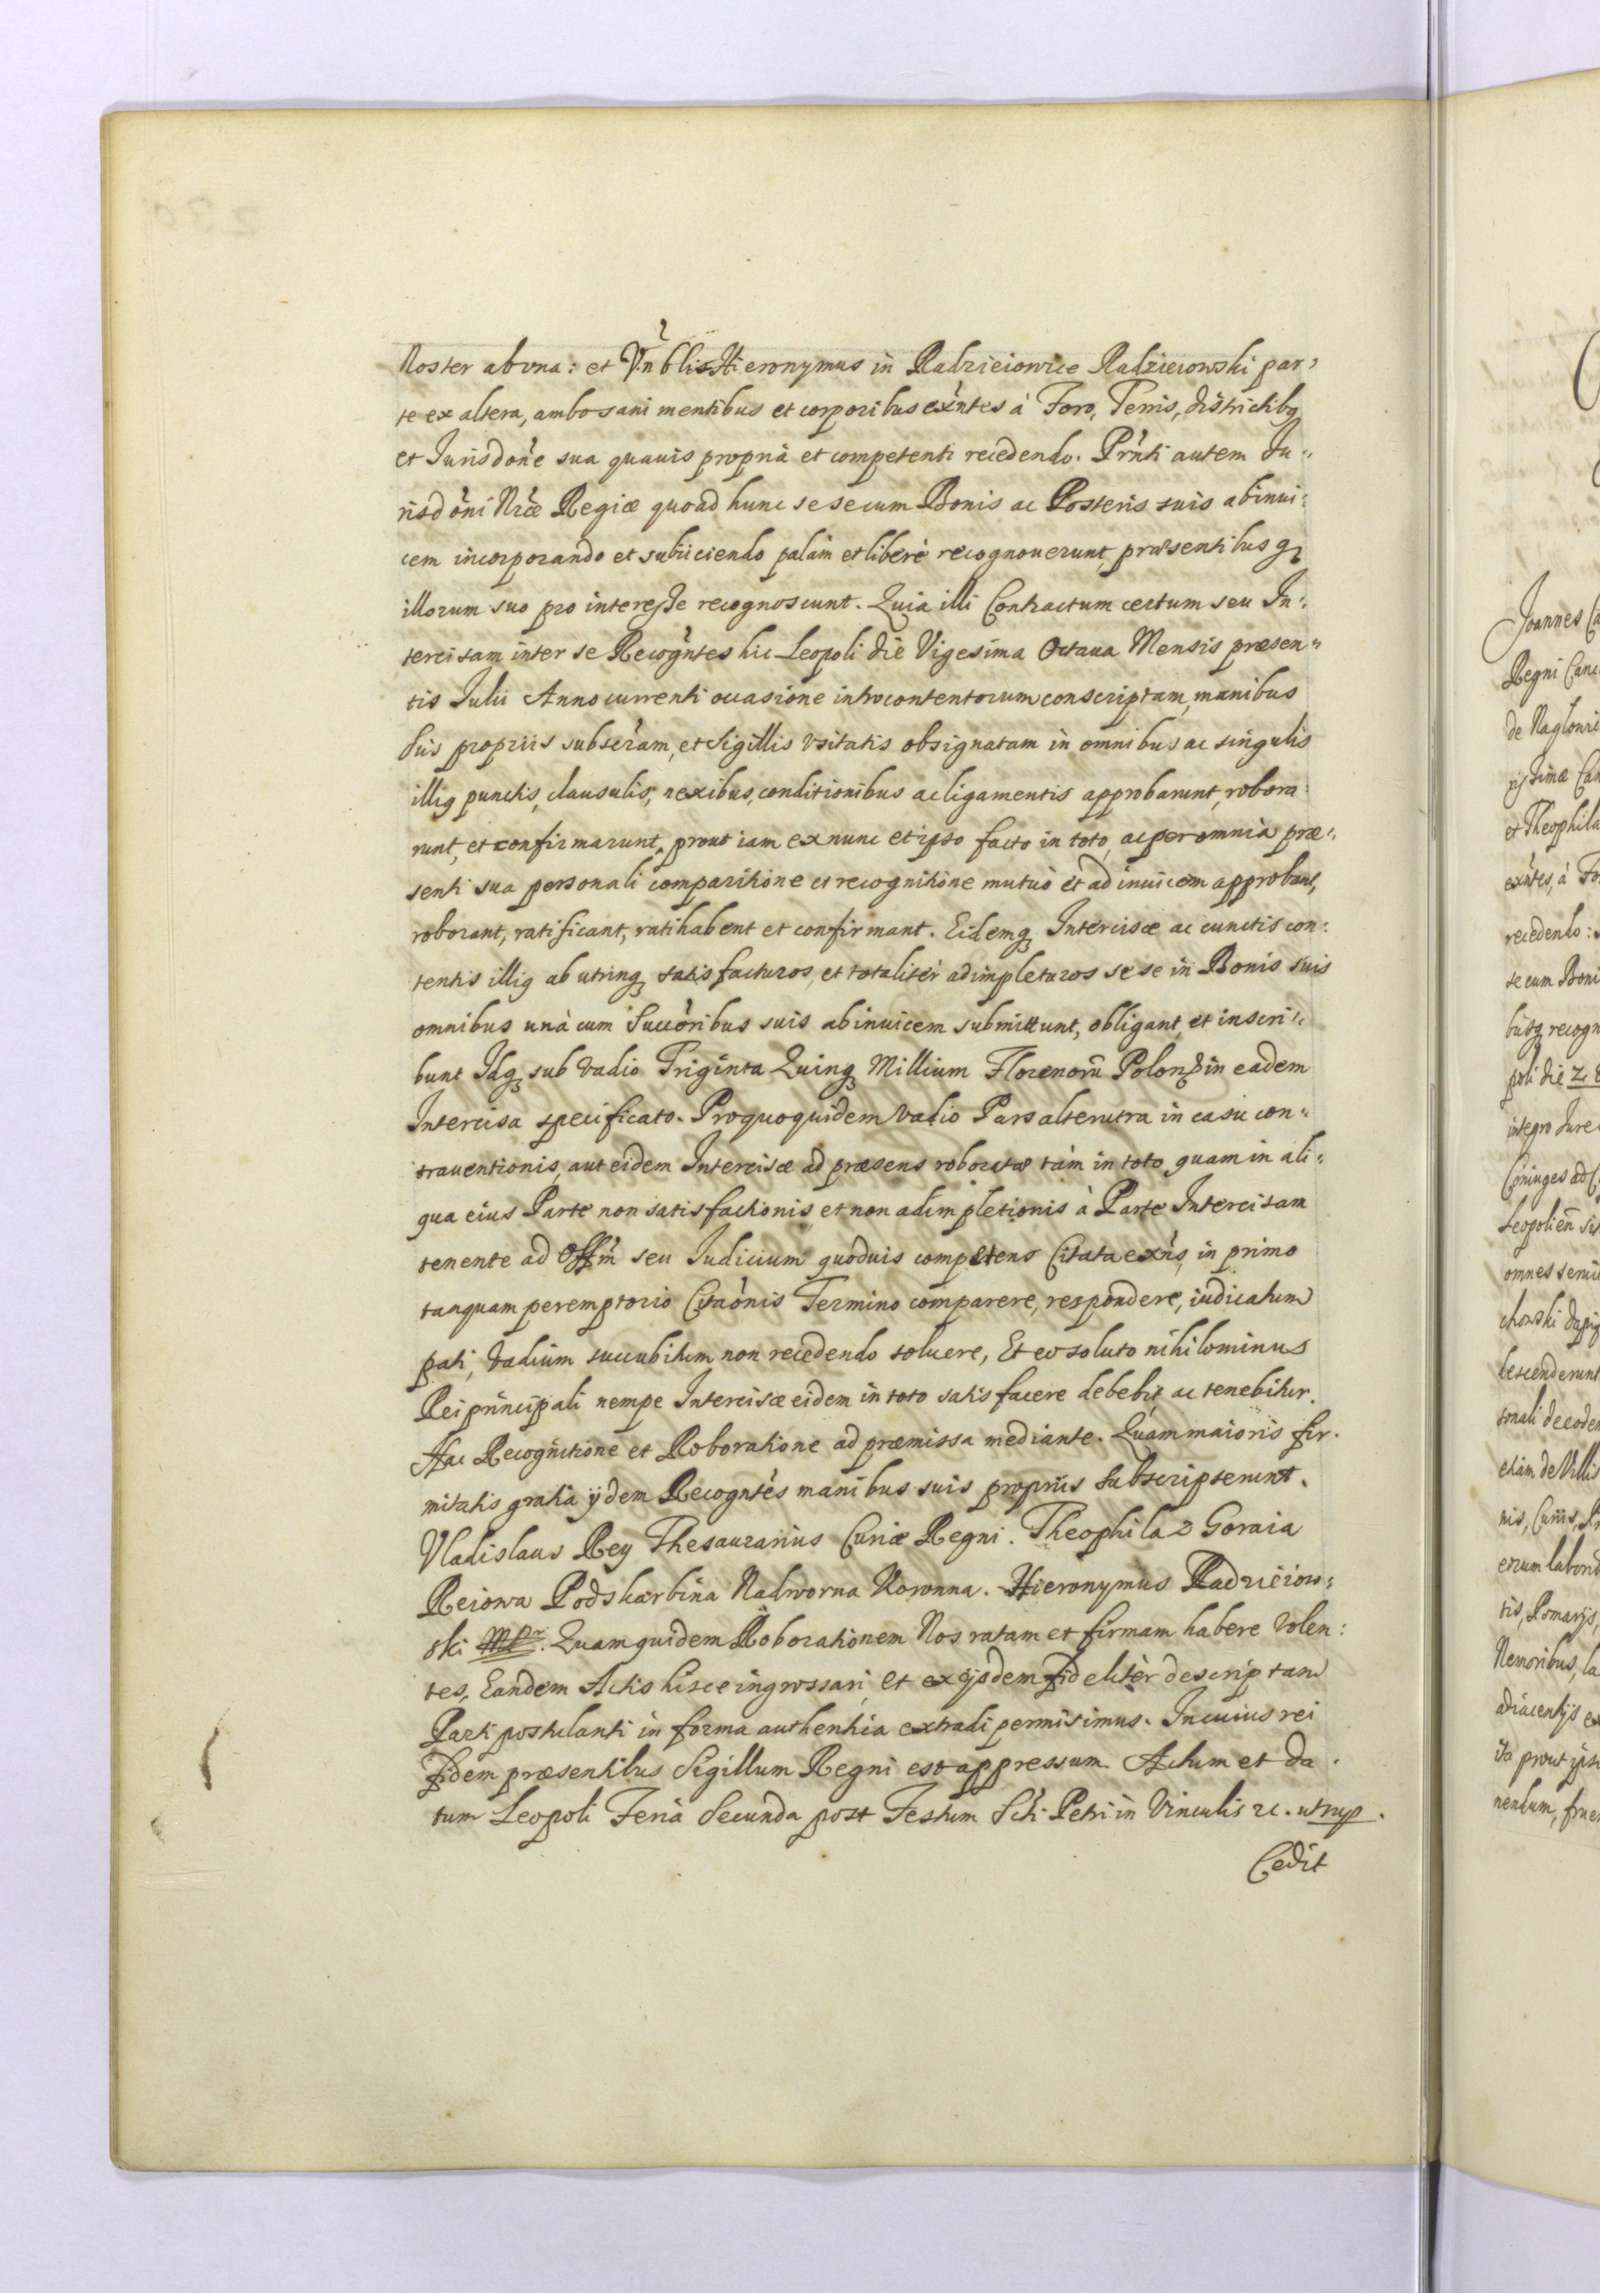 Noster ab vna: et Vn̄blis Hieronymus in Radzieiowice Radzieiowski par,
te ex altera, ambo sani mentibus et corporibus exn̄tes à Foro, Terris, districtibq
et Jurisdōne sua quauis propria et competenti recedendo. Prn̄ti autem Ju,,
risdōni Nrōe Regiæ quoad hunc se se cum Bonis ac Posteris suis abinui,
cem incorporando et subiiciendo palàm et liberè recognouerunt, præsentibusq
illorum suo pro interesse recognoscunt. Quia illi Contractum certum seu In,
tercisam inter se Recogn̄tes hic Leopoli die Vigesima Octaua Mensis præsen,,
tis Julii Anno currenti occasione introcontentorum conscriptam, manibus
suis propriis subscr̄am, et Sigillis vsitatis obsignatam in omnibus ac singulis
illig punctis, clausulis, nexibus, conditionibus ac ligamentis approbarunt, robora:
runt, et confirmarunt, prout iam ex nunc et ipso facto in toto, ac per omnia præ,,
senti sua personali comparitione et recognitione mutuò et ad inuicem approbant,
roborant, ratificant, ratihabent et confirmant. Eidemq Intercisæ ac cunctis con:
tentis illig ab utrinq satisfacturos, et totalitèr adimpleturos se se in Bonis suis
omnibus unà cum Succōribus suis abinuicem submittunt, obligant, et inscri,,
bunt Idq sub vadio Triginta Quinq Millium Florenorū Polon̄ in eadem
Intercisa specificato. Pro quo quidem vadio Pars alterutra in casu con,,
trauentionis, aut eidem Intercisæ ad præsens roboratæ tàm in toto quam in ali,
qua eius Parte non satisfactionis et non adimpletionis à Parte Intercisam
tenente ad Offm̄ seu Judicium quoduis competens Citata exn̄s, in primo
tanquam peremptorio Citaōnis Termino comparere, respondere, iudicatum
pati, vadium succubitum non recedendo soluere, Et eo soluto nihilominus
Rei principali nempe Intercisæ eidem in toto satisfacere debebit ac tenebitur.
Hac Recognitione et Roboratione ad præmissa mediante. Quam maioris fir.
mitatis gratia ÿdem Recogn̄tes manibus suis propriis subscripserunt.
Vladislaus Rey Thesaurarius Curiæ Regni. Theophila z Goraia
Reiowa Podskarbina Nadworna Koronna. Hieronymus Radzieiow,
ski MPr. Quam quidem Roborationem Nos ratam et firmam habere volen:
tes, Eandem Actis hisce ingrossari, et ex ijsdem fidelitèr descriptam
Parti postulanti in forma authentica extradi permisimus. In cuius rei
fidem præsentibus Sigillum Regni est appressum. Actum et da.
tum Leopoli Feria Secunda post Festum Sti. Petri in Vinculis zc. ut sup.
Cedit
Joannes Ca
Regni Canc
de Naglowi
et Theophila
exn̄tes, à Fo
recedendo:
se cum Boni
busq recogn
poli die 28
integro Jure
Coniuges ad C
Leopolien̄ si
omnes serui
chowski dapif
descenderunt
sonali de eodem
etiam de Villis
eorum labori
Nemoribus, la
adiacentijs ex
ita prout ipsi